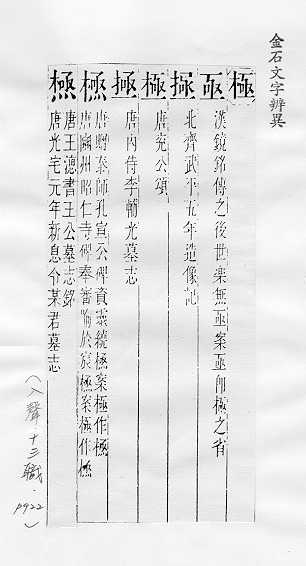 金石文字辨異
極
亟 漢鏡銘傳之後世樂無亟案亟卽極之省
北齊武平五年造像記
極 唐兖公頌
唐內侍李輔光墓志
極 唐贈泰師孔宣公碑資靈統極案極作極
唐豳州昭仁寺碑奉審諭於宸極案極作極
極 唐王德書王公墓志銘
唐光宅元年新息令某君墓志
(入聲·十三職·P922)